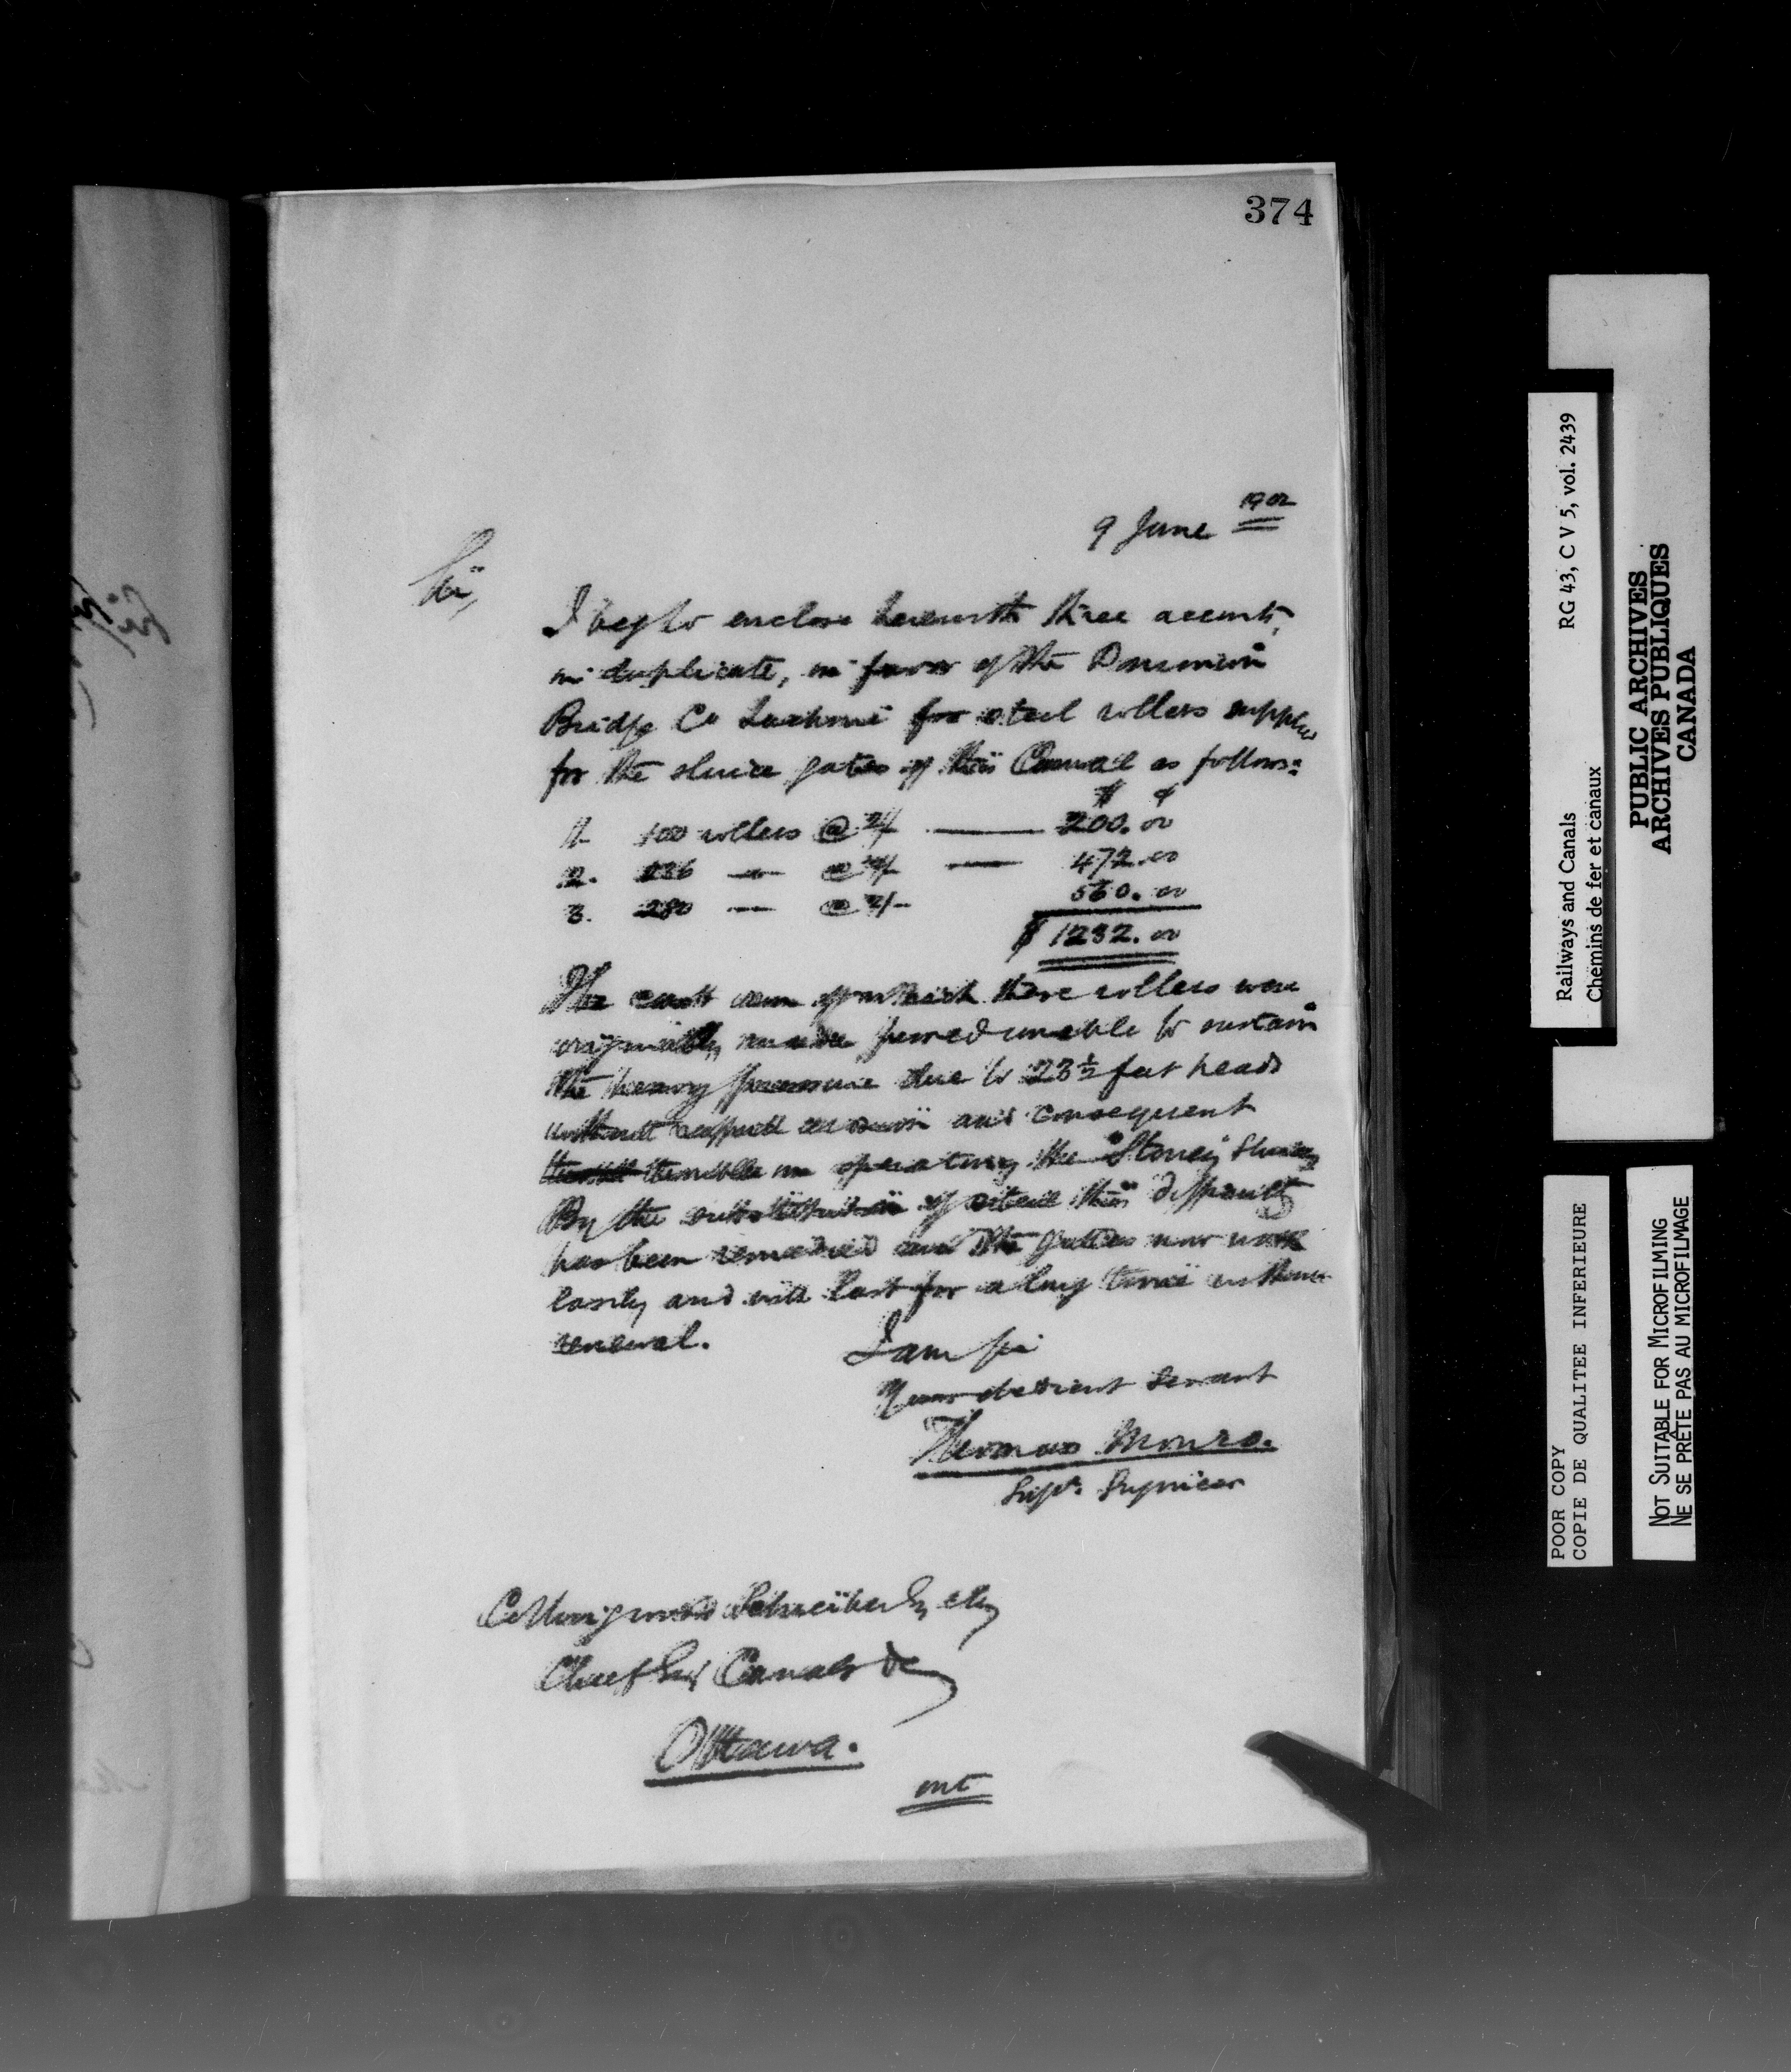 374
9 June 1902
Sir,
I beg to enclose herewith three accounts,
in duplicate, in favor of the Dominion
Bridge Co Lachine for steel rollers supplied
for the sluice gates of this Canal as follows:
$ ¢
1. 100 rollers @ 2/ — 200.00
2. 236 — @ 2/ — 472.00
3. 280 — @ 2/- 560.00
$ 1232.00
The cast iron of which these rollers were
originally made proved unable to sustain
the heavy pressure due to 23½ feet head
without and consequent
trouble in operating the "Stoney" Sluices
By the substitution of steel this difficulty
has been remedied and the gates now work
easily and will last for a long time without
renewal.
I am Sir
Your obedient servant
Thomas Monro.
Supt. Engineer
Collingwood Schreiber Esq
Chief Eng Canals &c
Ottawa.
Railways and Canals RG 43, C V 5, vol. 2439
Chemins de fer et canaux
PUBLIC ARCHIVES
ARCHIVES PUBLIQUES
CANADA
POOR COPY
COPIE DE QUALITEE INFERIEURE
NOT SUITABLE FOR MICROFILMING
NE SE PRÊTE PAS AU MICROFILMAGE